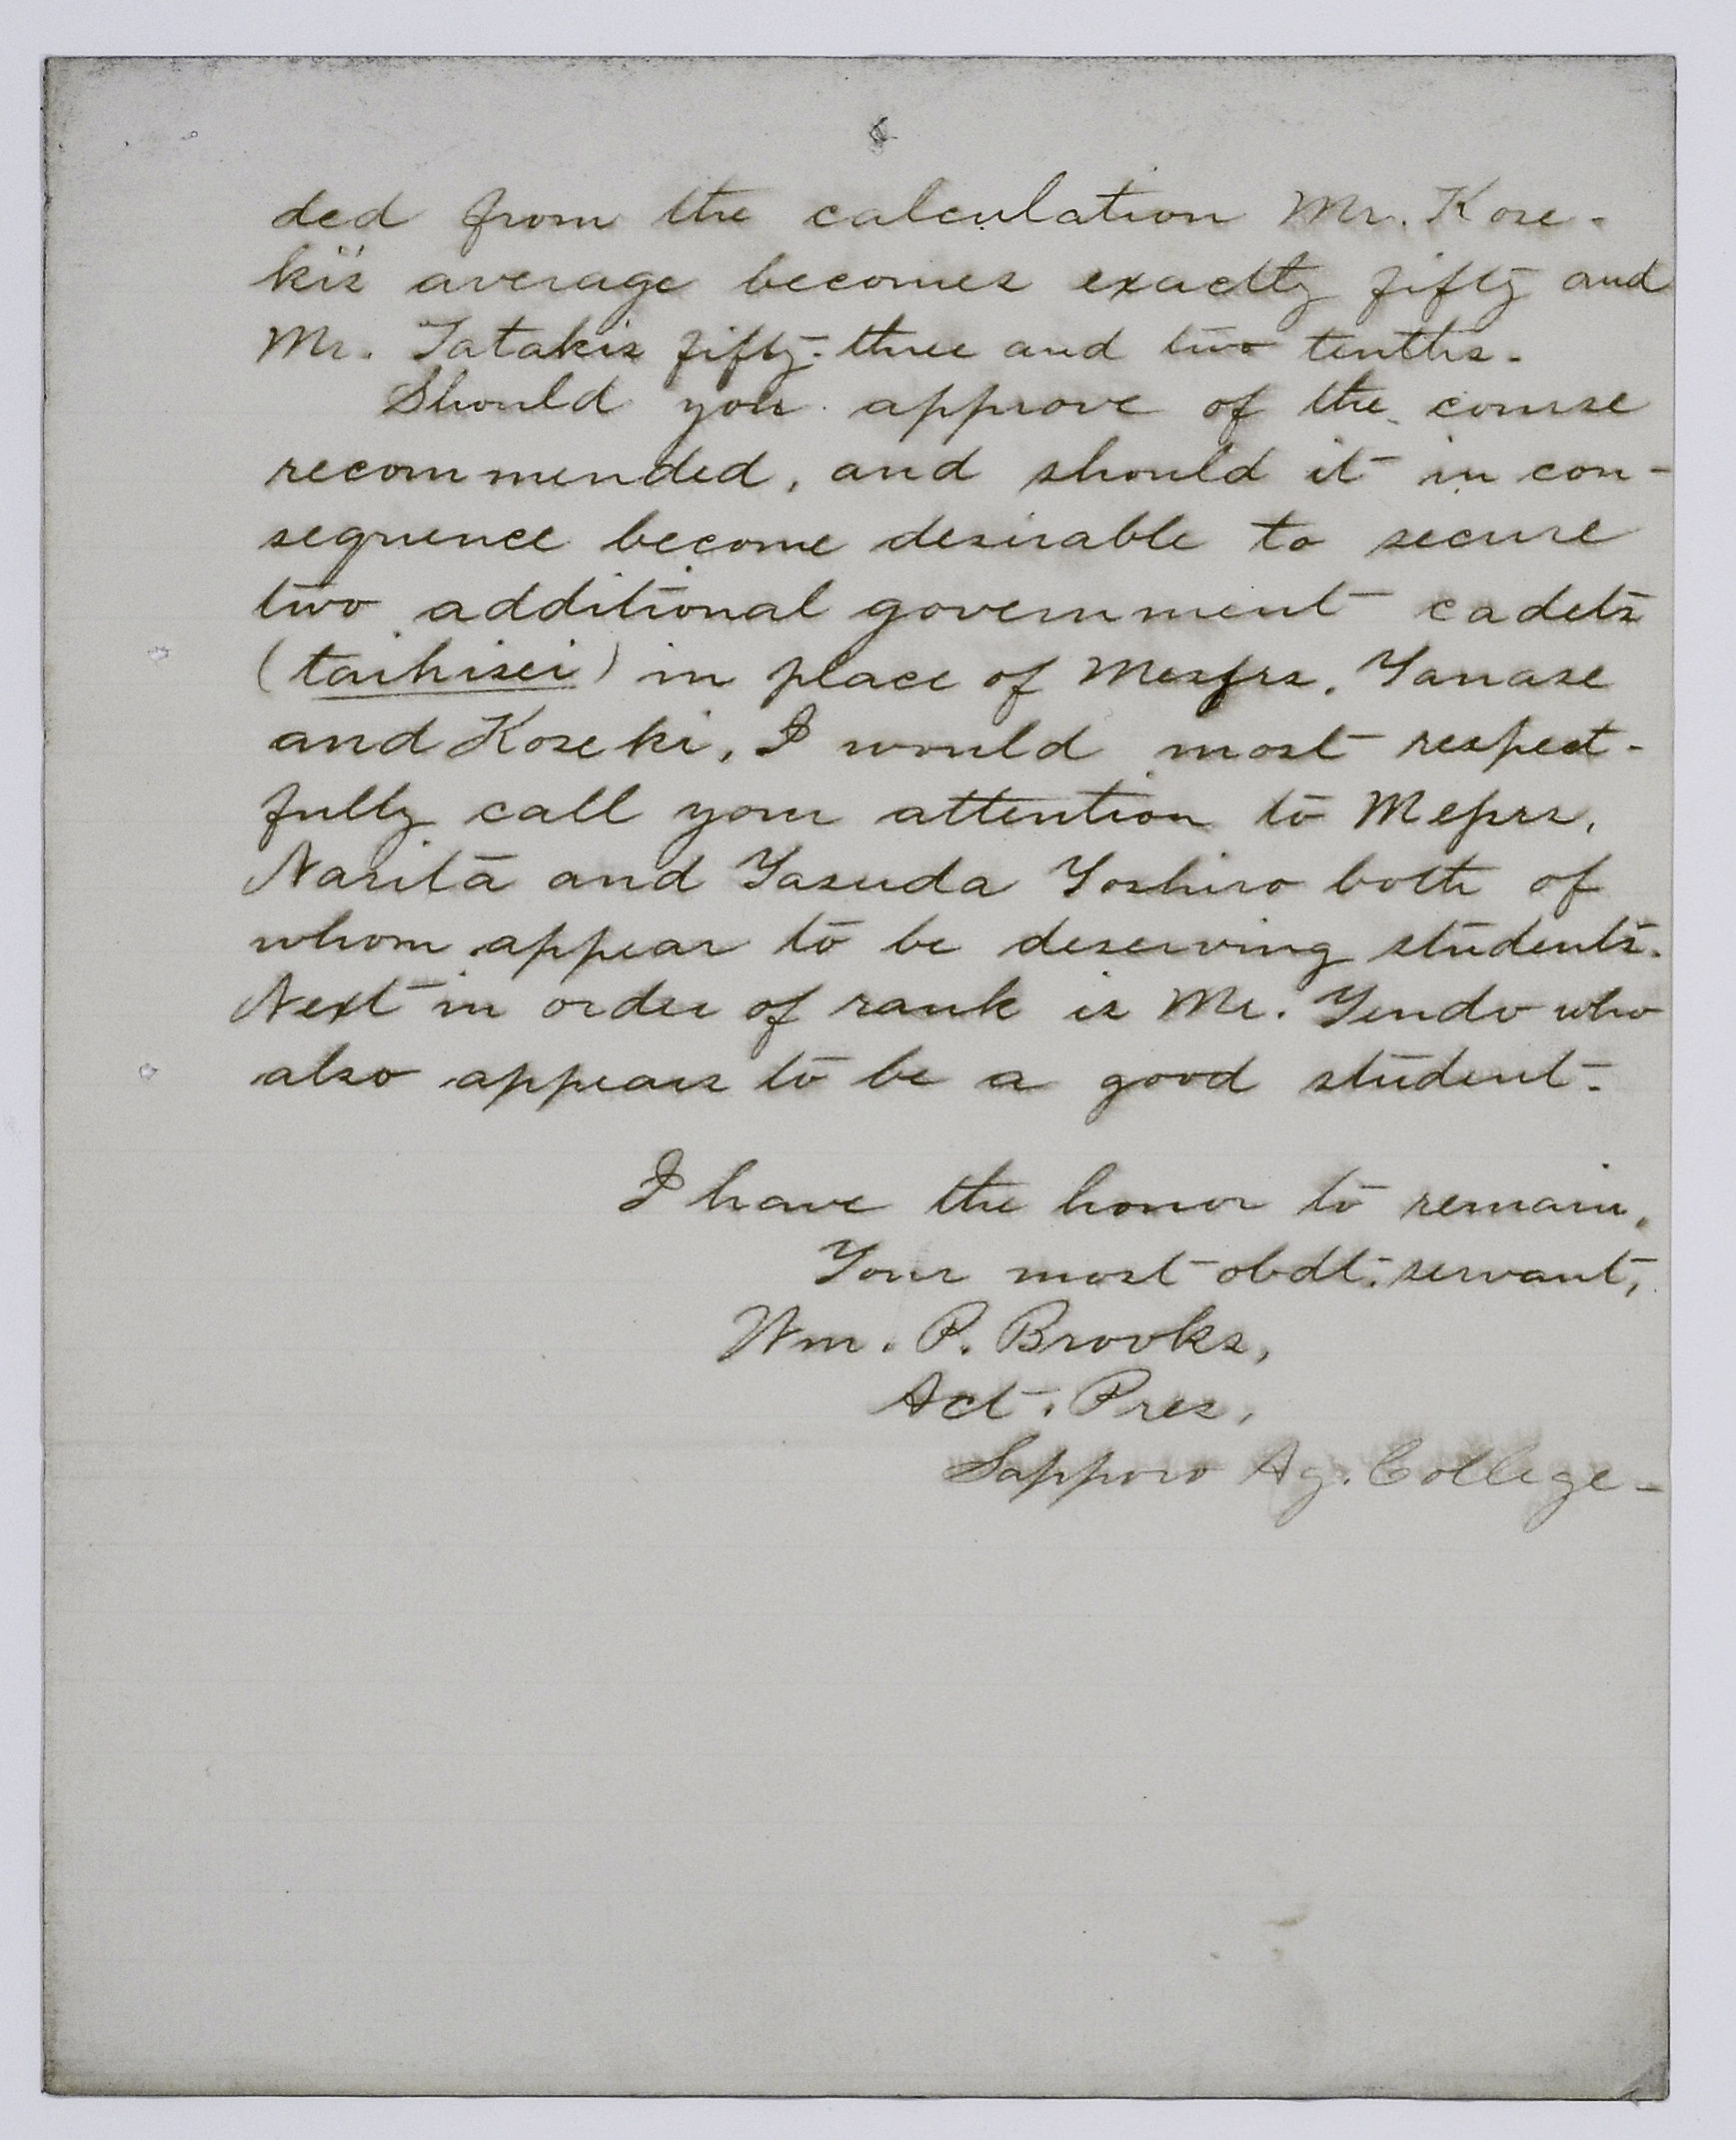 ded from the calculation Mr. Kose-
ki's average becomes exactly fifty and
Mr. Tatakis fifty-three and two tenths.
Should you approve of the course
recommended, and should it in con-
sequence become desirable to secure
two additional government cadets
(taihisei) in place of Messrs. Yanase
and Koseki, I would most respect-
fully call your attention to Messrs.
Narita and Yasuda Yoshiro both of
whom appear to be deserving students.
Next in order of rank is Mr. Yendo who
also appears to be a good student.
I have the honor to remain,
Your most obdt. servant,
Wm. P. Brooks,
Act. Pres,
Sapporo Ag. College-